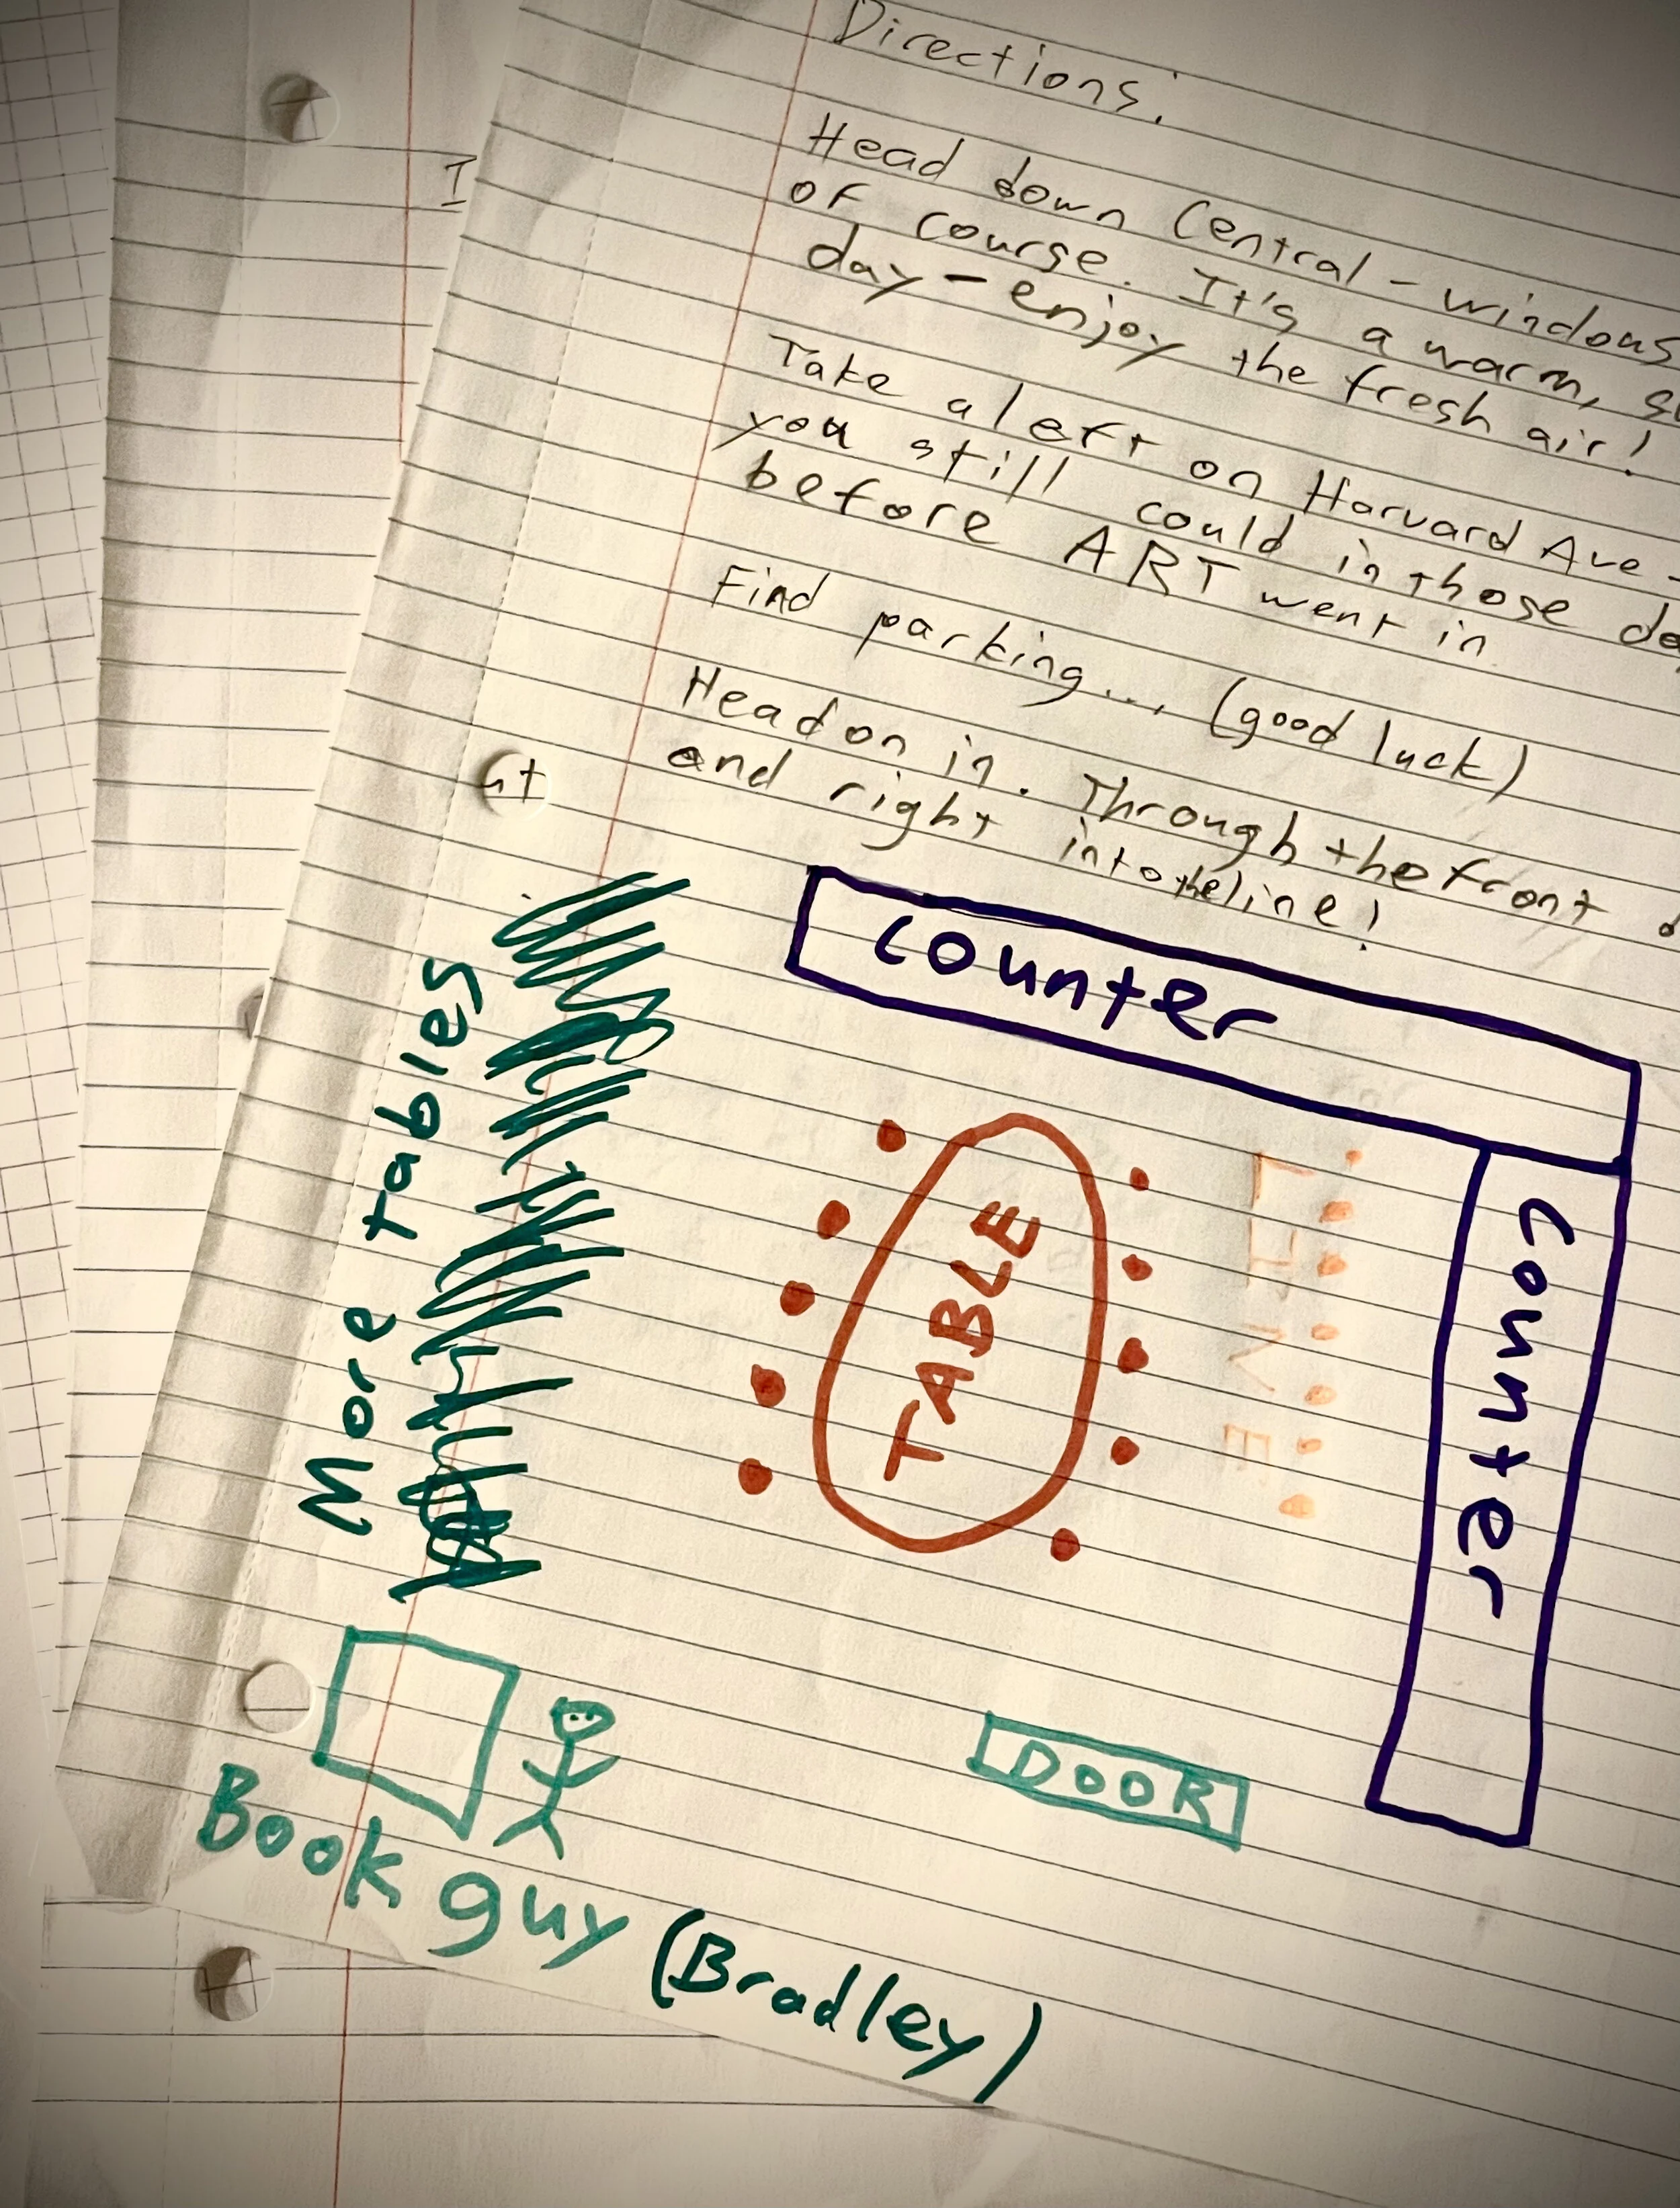 Directions:
Head down Central - windows
of course. It's a warm,
day - enjoy the fresh air!
Take a left on Harvard Ave -
you still could in those
before ART went in
Find parking... (good luck)
Head on in. Through the front
and right into the line!
I
ut
counter
counter
LINE
TABLE
More tables
DOOR
Book guy (Bradley)